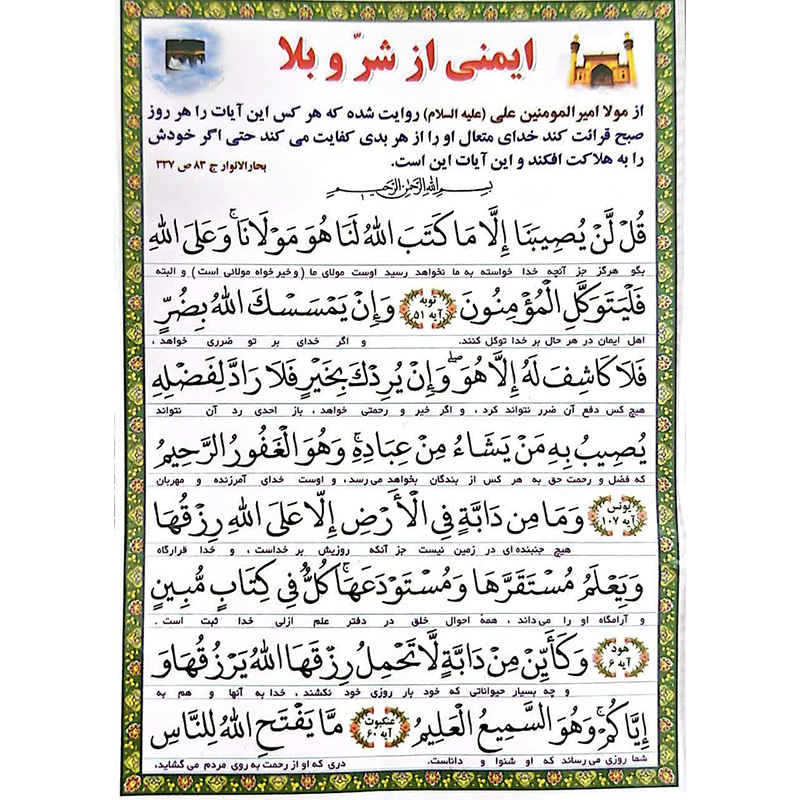 ایمنی از شرّ و بلا
از مولا امیرالمومنین علی (علیه السلام) روایت شده که هر کس این آیات را هر روز
صبح قرائت کند خدای متعال او را از هر بدی کفایت می کند حتی اگر خودش
را به هلاکت افکند و این آیات این است.
بحارالانوار ج ۸۳ ص ۳۳۷
بسم الله الرحمن الرحیم
قُلْ لَنْ يُصِيبَنَا إِلَّا مَا كَتَبَ اللهُ لَنَا هُوَ مَوْلَانَا ۚ وَعَلَى اللهِ
بگو هرگز جز آنچه خدا خواسته به ما نخواهد رسید اوست مولای ما (و خیر خواه مولائی است) و البته
فَلْيَتَوَكَّلِ الْمُؤْمِنُونَ توبه آیه ۵۱ وَإِنْ يَمْسَسْكَ اللهُ بِضُرٍّ
اهل ایمان در هر حال بر خدا توکل کنند. و اگر خدای بر تو ضرری خواهد،
فَلَا كَاشِفَ لَهُ إِلَّا هُوَ ۖ وَإِنْ يُرِدْكَ بِخَيْرٍ فَلَا رَادَّ لِفَضْلِهِ
هیچ کس دفع آن ضرر نتواند کرد، و اگر خیر و رحمتی خواهد، باز احدی رد آن نتواند
يُصِيبُ بِهِ مَنْ يَشَاءُ مِنْ عِبَادِهِ ۚ وَهُوَ الْغَفُورُ الرَّحِيمُ
که فضل و رحمت حق به هر کس از بندگان بخواهد می رسد، و اوست خدای آمرزنده و مهربان
یونس آیه ۱۰۷ وَمَا مِن دَابَّةٍ فِي الْأَرْضِ إِلَّا عَلَى اللهِ رِزْقُهَا
هیچ جنبنده ای در زمین نیست جز آنکه روزیش بر خداست، و خدا قرارگاه
وَيَعْلَمُ مُسْتَقَرَّهَا وَمُسْتَوْدَعَهَا ۚ كُلٌّ فِي كِتَابٍ مُبِينٍ
و آرامگاه او را می داند، همهٔ احوال خلق در دفتر علم ازلی خدا ثبت است.
هود آیه ۶ وَكَأَيِّنْ مِنْ دَابَّةٍ لَّا تَحْمِلُ رِزْقَهَا اللهُ يَرْزُقُهَا وَ
و چه بسیار حیواناتی که خود بار روزی خود نکشند، خدا به آنها و هم به
إِيَّاكُمْ ۚ وَهُوَ السَّمِيعُ الْعَلِيمُ عنکبوت آیه ۶۰ مَّا يَفْتَحِ اللهُ لِلنَّاسِ
شما روزی می رساند که او شنوا و داناست. دری که او از رحمت به روی مردم می گشاید،